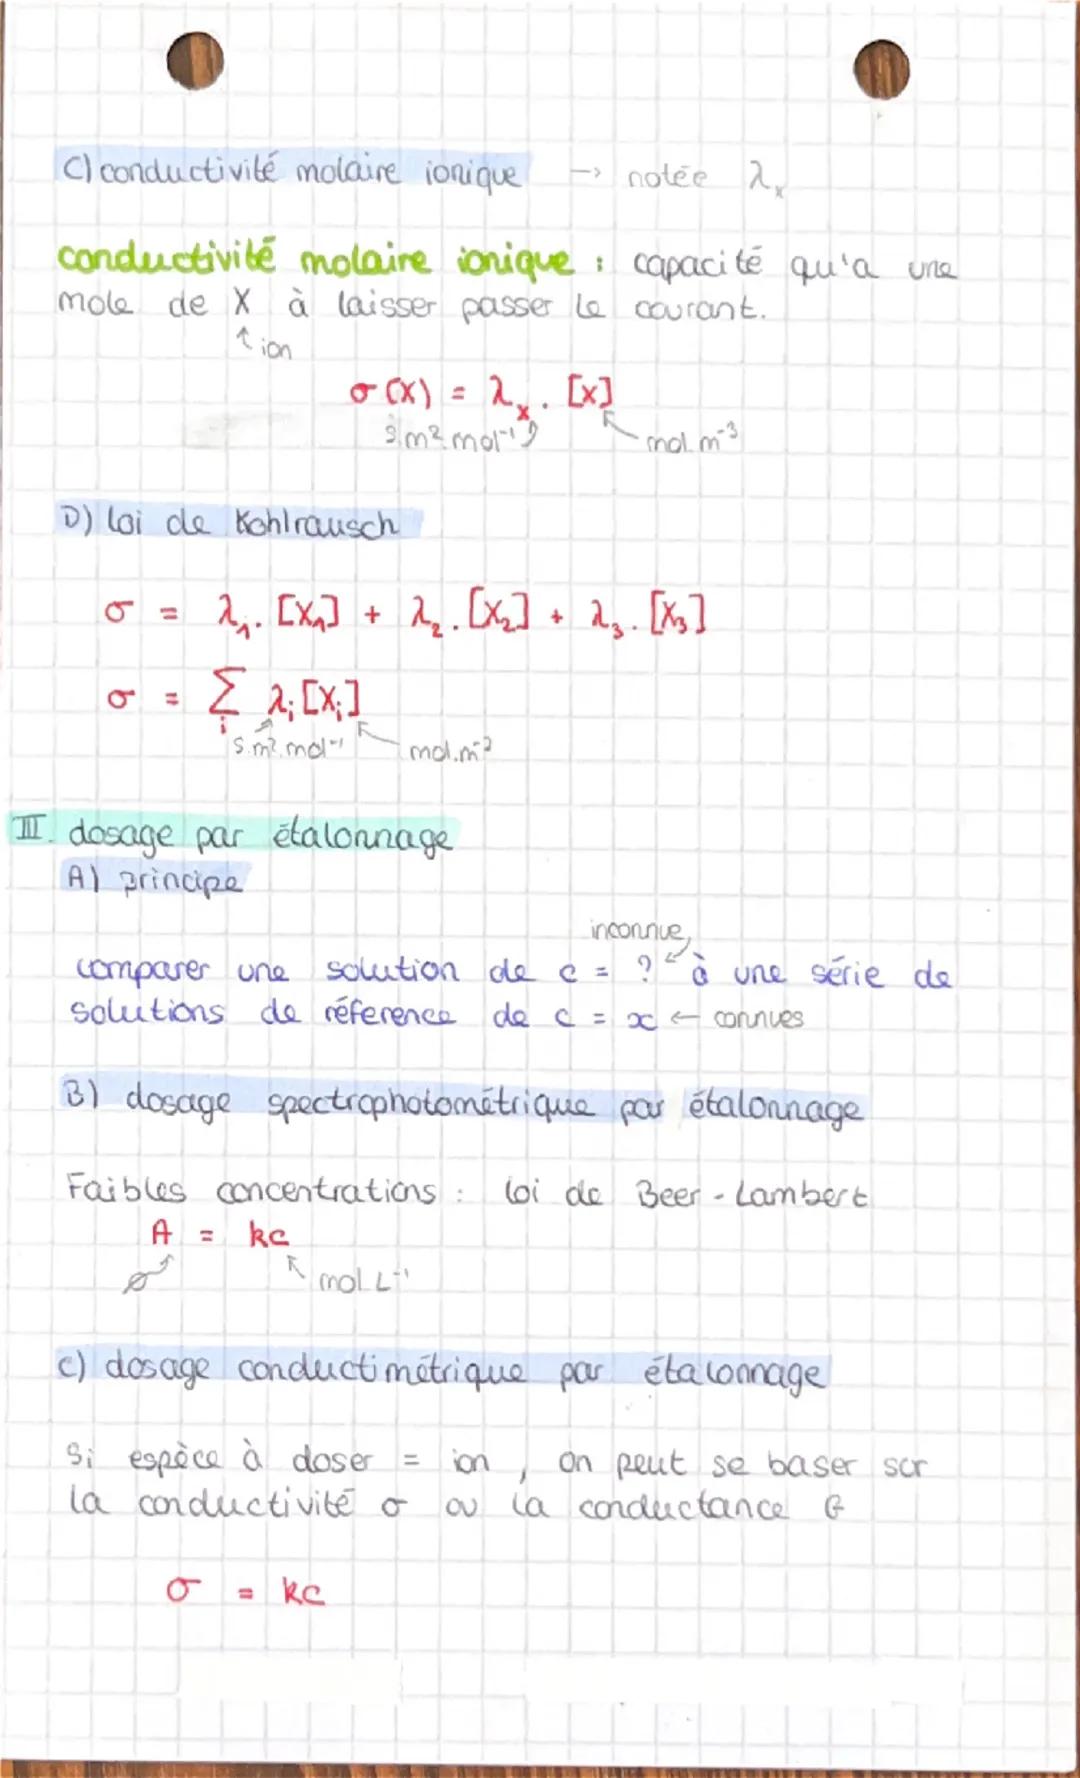 C) conductivité molaire ionique → notée λₓ
conductivité molaire ionique : capacité qu'a une
mole de X à laisser passer le courant.
↑ ion
σ(X) = λₓ . [X]
S.m².mol⁻¹ mol.m⁻³
D) loi de Kohlrausch
σ = λ₁.[X₁] + λ₂.[X₂] + λ₃.[X₃]
σ = Σ λᵢ[Xᵢ]
i
S.m².mol⁻¹ mol.m⁻³
III. dosage par étalonnage
A) principe
inconnue
comparer une solution de c = ? à une série de
solutions de réference de c = x ← connues
B) dosage spectrophotométrique par étalonnage
Faibles concentrations : loi de Beer-Lambert
A = kc
ø mol.L⁻¹
C) dosage conductimétrique par étalonnage
Si espèce à doser = ion, on peut se baser sur
la conductivité σ ou la conductance G
σ = kc